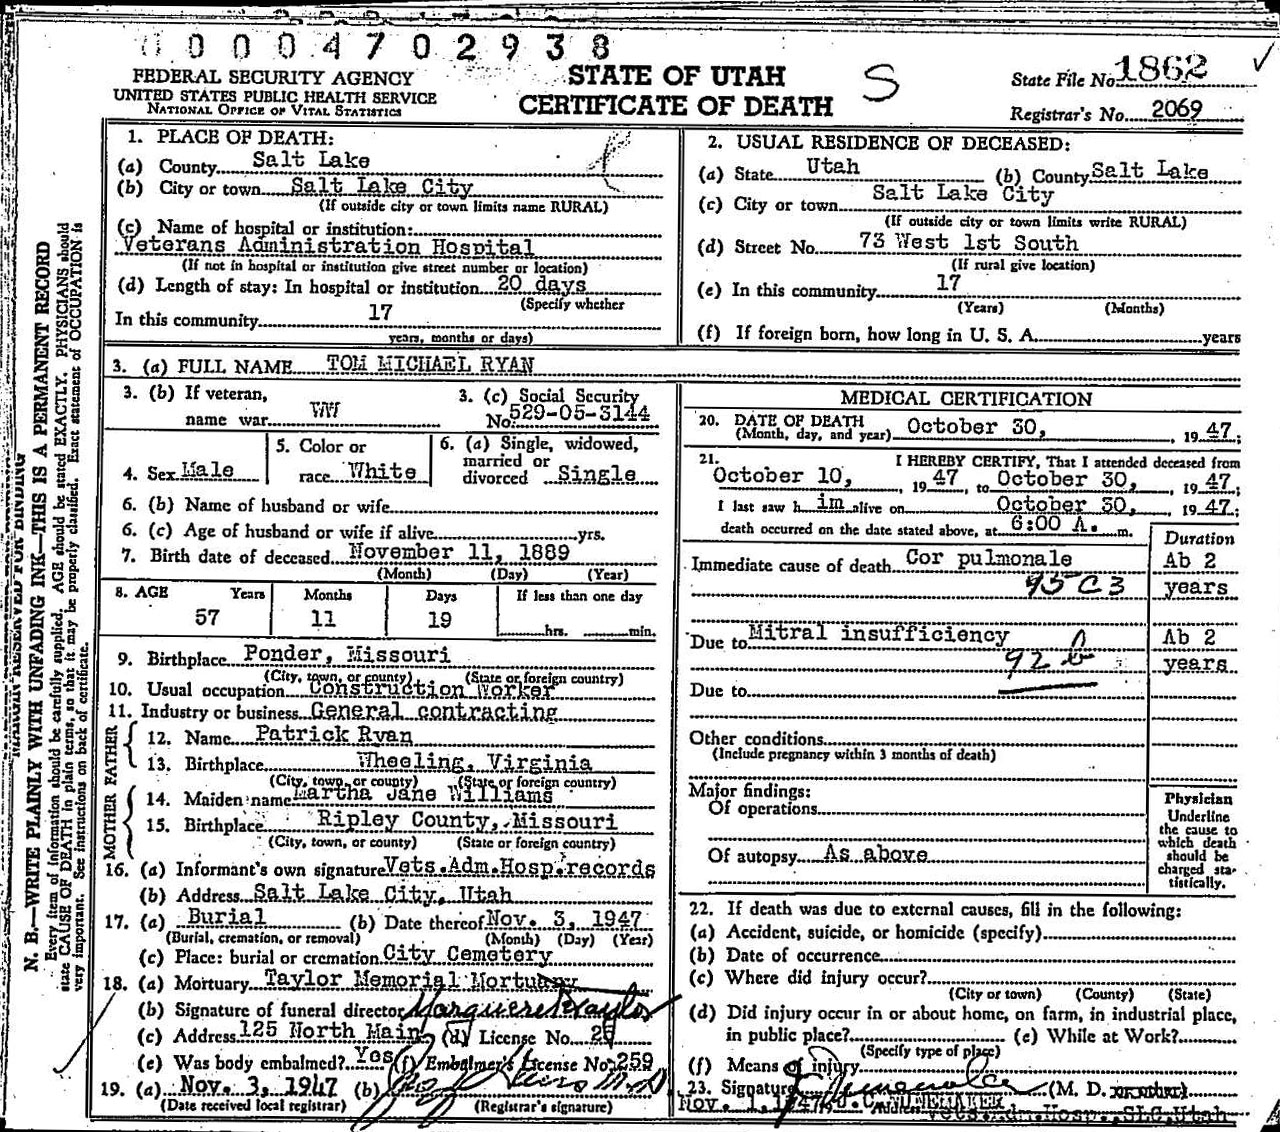 00004702938
FEDERAL SECURITY AGENCY
UNITED STATES PUBLIC HEALTH SERVICE
NATIONAL OFFICE OF VITAL STATISTICS
STATE OF UTAH
CERTIFICATE OF DEATH
S
State File No. 1862
Registrar's No. 2069
1. PLACE OF DEATH:
(a) County Salt Lake
(b) City or town Salt Lake City
(If outside city or town limits name RURAL)
(c) Name of hospital or institution:
Veterans Administration Hospital
(If not in hospital or institution give street number or location)
(d) Length of stay: In hospital or institution 20 days
(Specify whether
In this community 17
years, months or days)
2. USUAL RESIDENCE OF DECEASED:
(a) State Utah (b) County Salt Lake
(c) City or town Salt Lake City
(If outside city or town limits write RURAL)
(d) Street No. 73 West 1st South
(If rural give location)
(e) In this community 17
(Years) (Months)
(f) If foreign born, how long in U. S. A. years
3. (a) FULL NAME TOM MICHAEL RYAN
3. (b) If veteran,
name war WW
3. (c) Social Security
No. 529-05-3144
4. Sex Male
5. Color or
race White
6. (a) Single, widowed,
married or
divorced Single
6. (b) Name of husband or wife
6. (c) Age of husband or wife if alive yrs.
7. Birth date of deceased November 11, 1889
(Month) (Day) (Year)
8. AGE Years Months Days If less than one day
57 11 19 hrs. min.
9. Birthplace Ponder, Missouri
(City, town, or county) (State or foreign country)
10. Usual occupation Construction Worker
11. Industry or business General contracting
FATHER
12. Name Patrick Ryan
13. Birthplace Wheeling, Virginia
(City, town, or county) (State or foreign country)
MOTHER
14. Maiden name Martha Jane Williams
15. Birthplace Ripley County, Missouri
(City, town, or county) (State or foreign country)
16. (a) Informant's own signature Vets.Adm.Hosp.records
(b) Address Salt Lake City, Utah
17. (a) Burial (b) Date thereof Nov. 3, 1947
(Burial, cremation, or removal) (Month) (Day) (Year)
(c) Place: burial or cremation City Cemetery
18. (a) Mortuary Taylor Memorial Mortuary
(b) Signature of funeral director
(c) Address 125 North Main (d) License No.
(e) Was body embalmed? Yes (f) Embalmer's License No. 259
19. (a) Nov. 3, 1947 (b)
(Date received local registrar) (Registrar's signature)
MEDICAL CERTIFICATION
20. DATE OF DEATH
(Month, day, and year) October 30, , 1947;
21. I HEREBY CERTIFY, That I attended deceased from
October 10, , 1947 , to October 30, , 1947;
I last saw him alive on October 30, , 1947;
death occurred on the date stated above, at 6:00 A. m.
Duration
Immediate cause of death Cor pulmonale Ab 2
95 C 3 years
Due to Mitral insufficiency Ab 2
92 b years
Due to
Other conditions
(Include pregnancy within 3 months of death)
Major findings:
Of operations
Of autopsy As above
Physician
Underline
the cause to
which death
should be
charged sta-
tistically.
22. If death was due to external causes, fill in the following:
(a) Accident, suicide, or homicide (specify)
(b) Date of occurrence
(c) Where did injury occur?
(City or town) (County) (State)
(d) Did injury occur in or about home, on farm, in industrial place,
in public place? (e) While at Work?
(Specify type of place)
(f) Means of injury
23. Signature (M. D. or other)
Nov. 1, 1947 Address Vets.Adm.Hosp.,SLC,Utah
MARGIN RESERVED FOR BINDING
N. B.—WRITE PLAINLY WITH UNFADING INK—THIS IS A PERMANENT RECORD
Every item of information should be carefully supplied. AGE should be stated EXACTLY. PHYSICIANS should
state CAUSE OF DEATH in plain terms, so that it may be properly classified. Exact statement of OCCUPATION is
very important. See instructions on back of certificate.